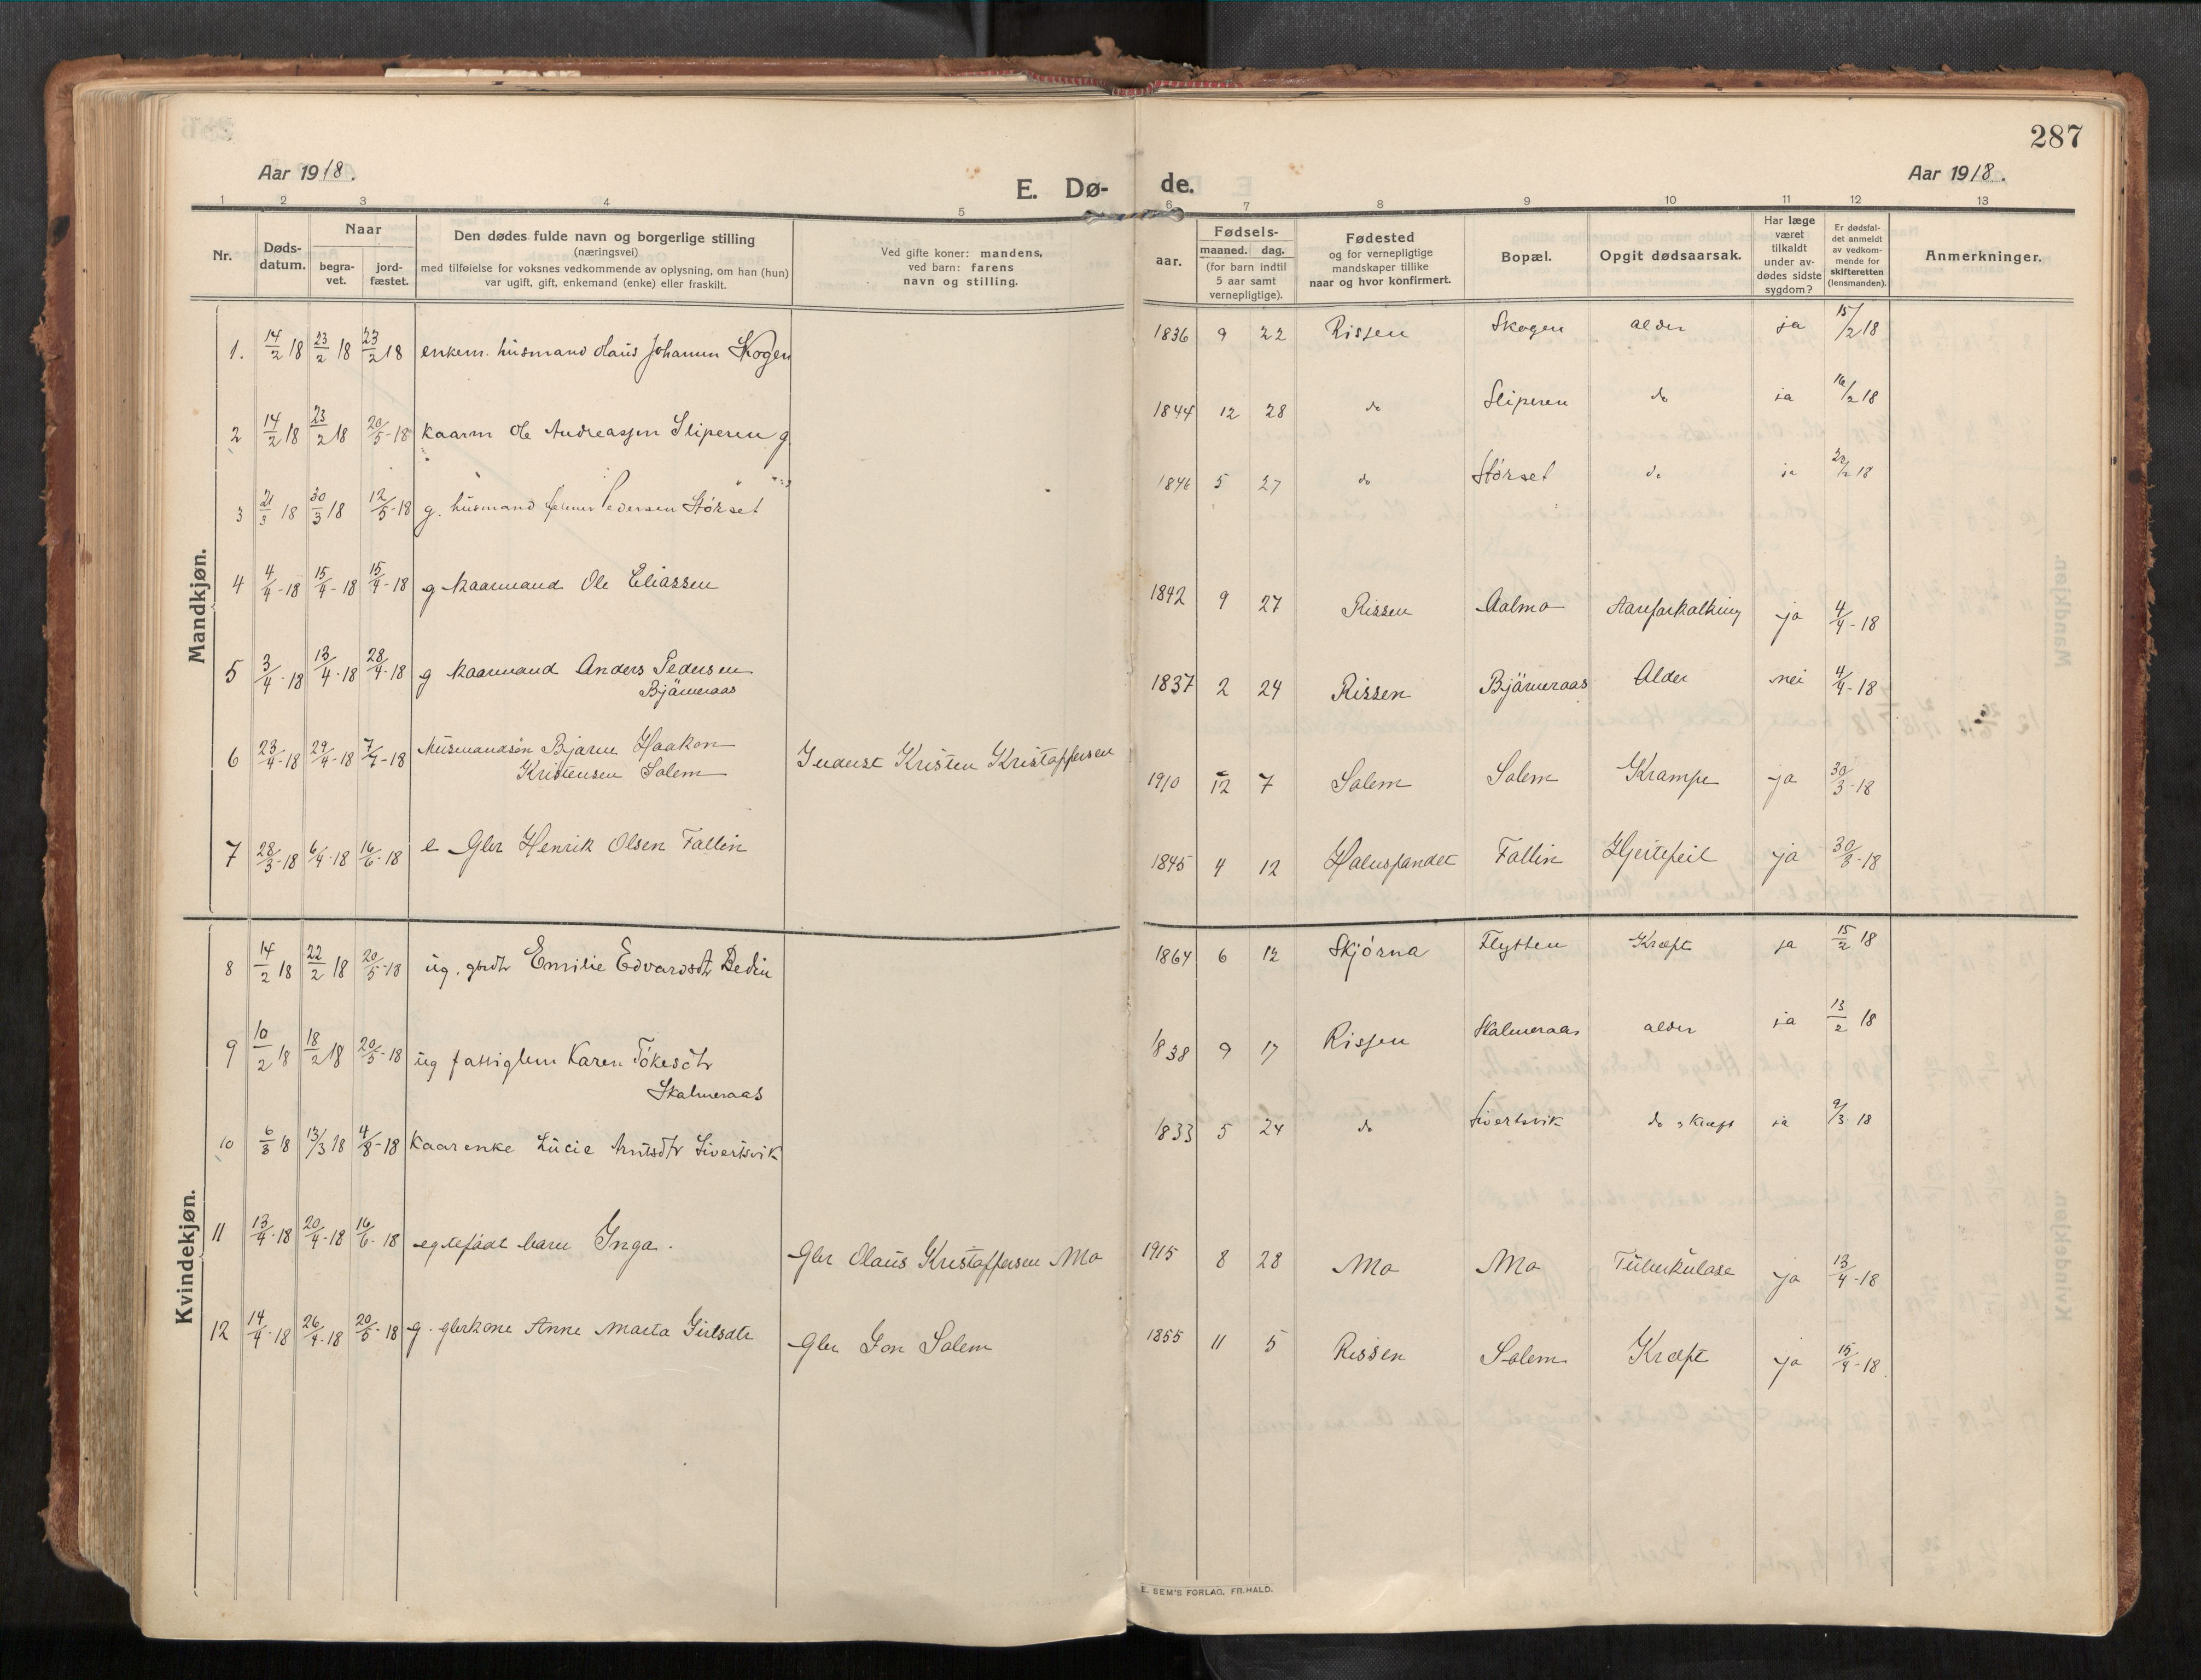 287
Aar 1918.
E. Dø-
de.
Aar 1918.
1 2 3 4 5 6 7 8 9 10 11 12 13
Nr.
Døds-
datum.
Naar
begra-
vet.
jord-
fæstet.
Den dødes fulde navn og borgerlige stilling
(næringsvei)
med tilføielse for voksnes vedkommende av oplysning, om han (hun)
var ugift, gift, enkemand (enke) eller fraskilt.
Ved gifte koner: mandens,
ved barn: farens
navn og stilling.
Fødsels-
aar.
maaned. dag.
(for barn indtil
5 aar samt
vernepligtige).
Fødested
og for vernepligtige
mandskaper tillike
naar og hvor konfirmert.
Bopæl.
Opgit dødsaarsak.
Har læge
været
tilkaldt
under av-
dødes sidste
sygdom?
Er dødsfal-
det anmeldt
av vedkom-
mende for
skifteretten
(lensmanden).
Anmerkninger.
Mandkjøn.
1. 14/2 18 23/2 18 23/2 18 enkem. husmand Olaus Johannn Skogen 1836 9 22 Rissen Skogen alder ja 15/2 18
2 14/2 18 23/2 18 20/5-18 Kaarm Ole Andreassen Sliperen g. 1844 12 28 do Sliperen do ja 16/2 18
3 21/3 18 30/3 18 12/5-18 g. husmand Pedersen Størset 1846 5 27 do Størset do ja 18
4 4/4-18 15/4-18 15/4-18 g kaarmand Ole Eliassen 1842 9 27 Rissen Aalmo Aareforkalkning ja 4/4-18
5 3/4-18 13/4-18 28/4-18 g kaarmand Anders Pedersen
Bjärneraas 1837 2 24 Rissen Bjärneraas Alder nei 4/4-18
6 23/4-18 29/4-18 7/7-18 Husmandsøn Bjarne Haakon
Kristensen Salem Inderst Kristen Kristoffersen 1910 12 7 Salem Salem Krampe ja 30/3-18
7 28/3-18 6/4-18 16/6-18 e Gbr Henrik Olsen Fallin 1845 4 12 Fallin Hjertefeil ja 30/3-18
Kvindekjøn.
8 14/2 18 22/2 18 20/5-18 ug. gbrdtr Emilie Edvardsdtr Dedin 1864 6 12 Skjørna Flytten Kræft ja 15/2 18
9 10/2 18 18/2 18 20/5-18 ug fattiglem Karen Tökesdtr
Skalmeraas 1838 9 17 Rissen Skalmeraas alder ja 13/2 18
10 6/3 18 13/3 18 4/8-18 Kaarenke Lucie Arntsdtr Sivertsvik 1833 5 24 do Sivertsvik do, kræft ja 9/3 18
11 13/4-18 20/4-18 16/6-18 egtefødt barn Inga. Gbr Olaus Kristoffersen Mo 1915 8 28 Mo Mo Tuberkulose ja 13/4-18
12 14/4-18 26/4-18 20/5-18 g. gbrkone Anne Marta Girtsdtr Gbr Jon Salem 1855 11 5 Rissen Salem Kræft ja 15/4-18
E. SEM'S FORLAG, FR.HALD.